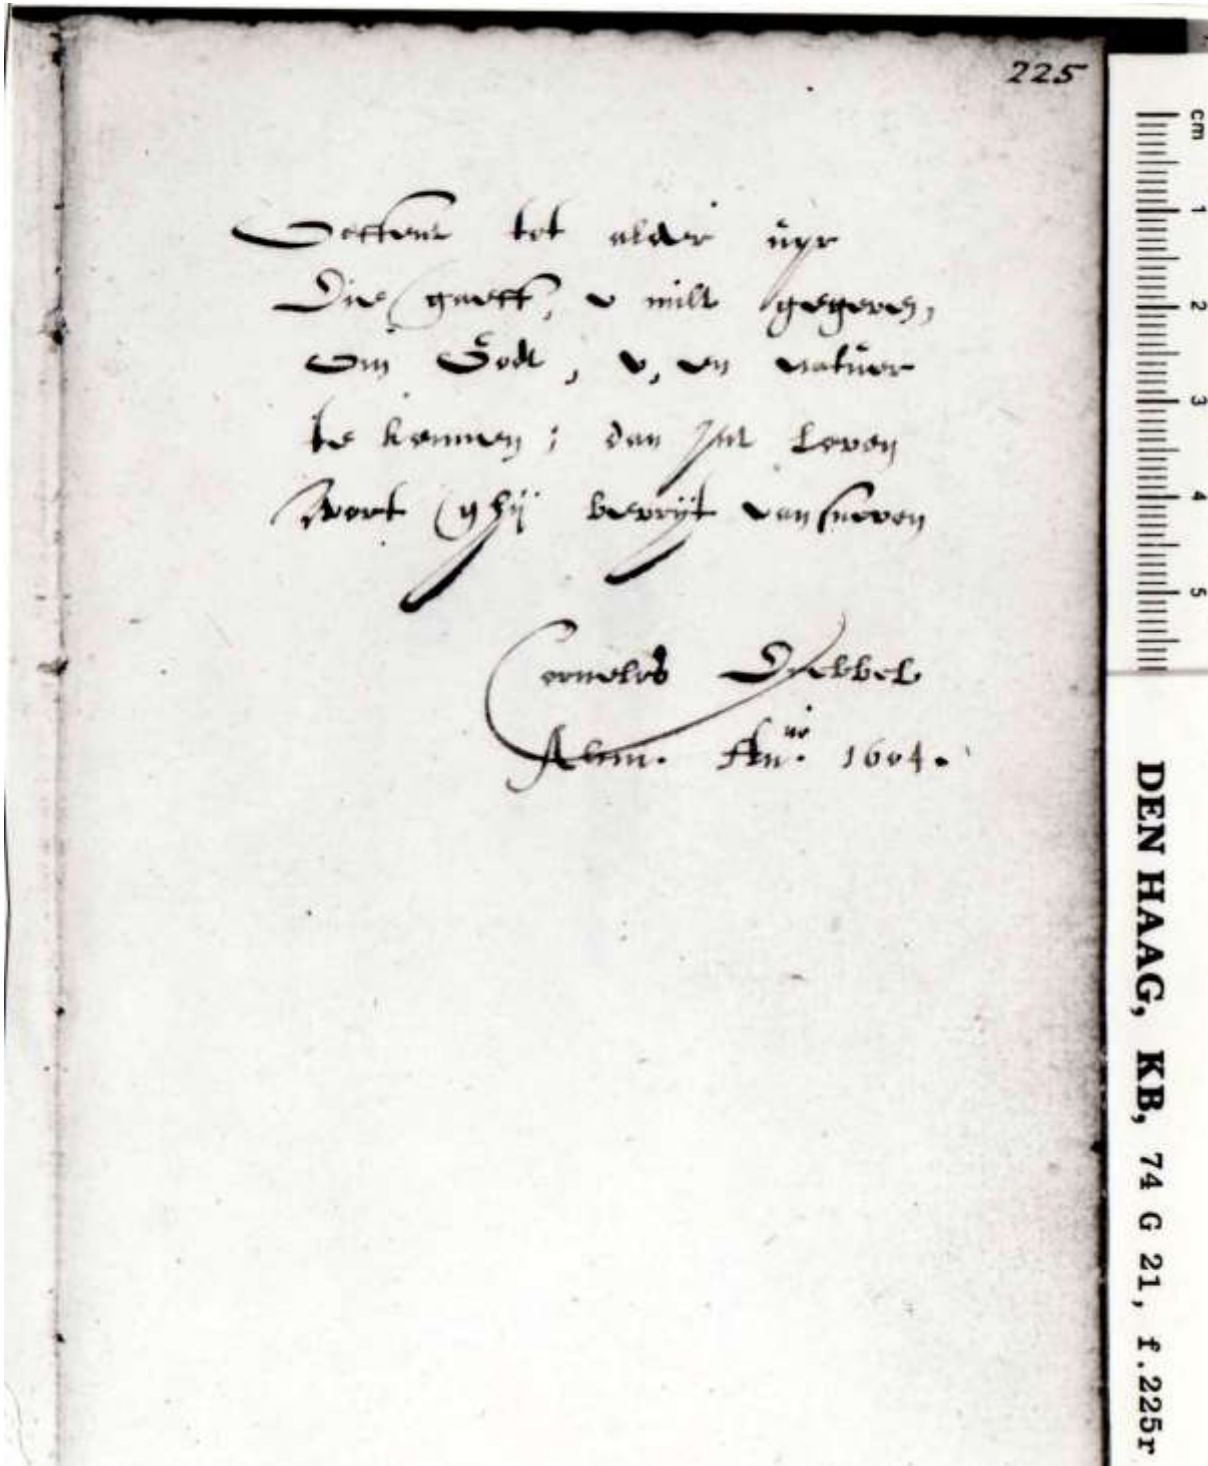 225
Oeffent tot alder üyr
Die gaest, v milt gegeven,
Om Godt, v, en natüer
te kennen; dan zal Leven
Wort ghij bevrijt van sneven
Cornelis Drebbel
Alcm. Anno. 1604.
cm 1 2 3 4 5
DEN HAAG, KB, 74 G 21, f.225r